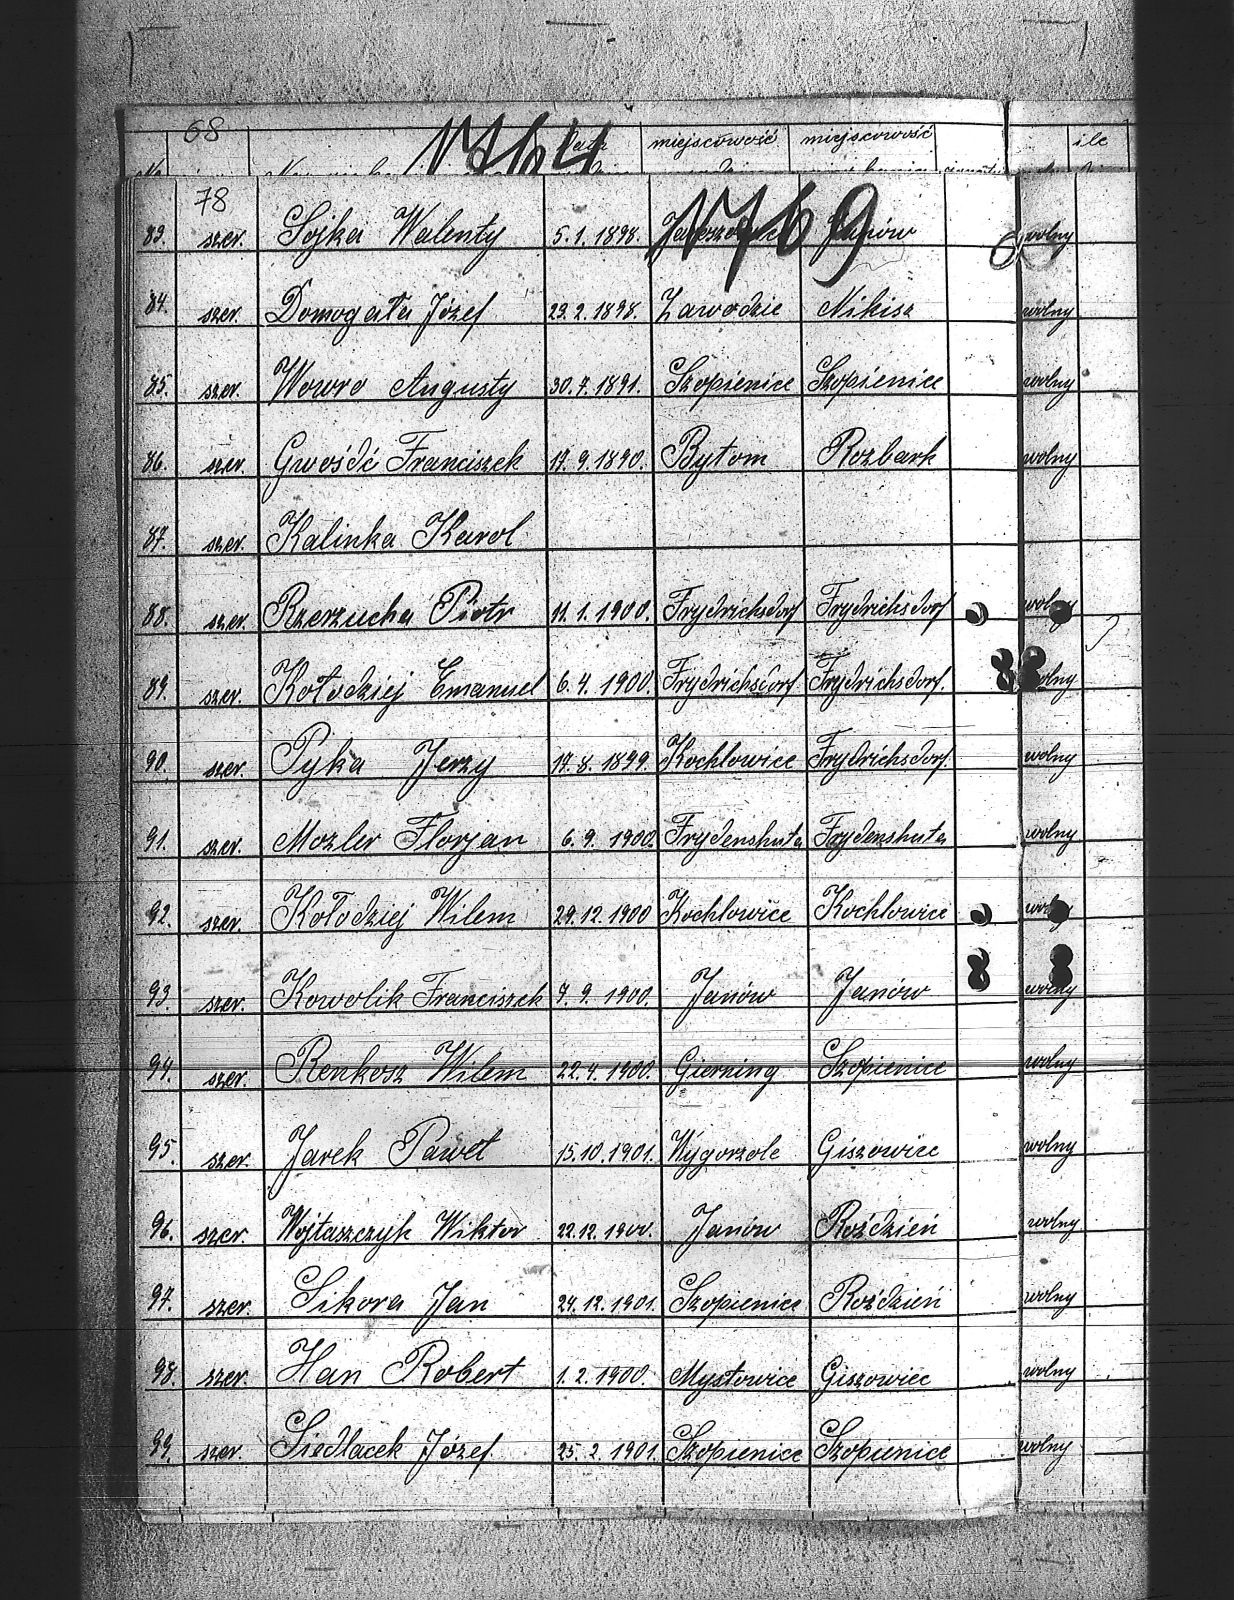 68 1764 miejscowość miejscowość ile
78 1769
83. szer. Sojka Walenty 5.1.1898. Janów wolny
84. szer. Domogała Józef 23.2.1898. Zawodzie Nikisz wolny
85. szer. Wowro Augusty 30.7.1891. Szopienice Szopienice wolny
86. szer. Gwośdź Franciszek 17.9.1890. Bytom Rozbark wolny
87. szer. Kalinka Karol
88. szer. Rzerzucha Piotr 11.1.1900. Frydrichsdorf Frydrichsdorf wolny
89. szer. Kołodziej Emanuel 6.4.1900 Frydrichsdorf Frydrichsdorf. wolny
90. szer. Pyka Jerzy 17.8.1899. Kochlowice Frydrichsdorf. wolny
91. szer. Mozler Florjan 6.9.1900. Frydenshuta Frydenshuta wolny
92. szer. Kołodziej Wilem 29.12.1900 Kochlowice Kochlowice wolny
93. szer. Kowolik Franciszek 7.9.1900. Janów Janów wolny
94. szer. Renkosz Wilem 22.4.1900. Gierning Szopienice wolny
95. szer. Jarek Paweł 15.10.1901. Wygorzole Giszowiec wolny
96. szer. Wojtaszczyk Wiktor 22.12.1900. Janów Roździeń wolny
97. szer. Sikora Jan 24.12.1901. Szopienice Roździeń wolny
98. szer. Han Robert 1.2.1900. Mysłowice Giszowiec wolny
99. szer. Siedlacek Józef 25.2.1901. Szopienice Szopienice wolny